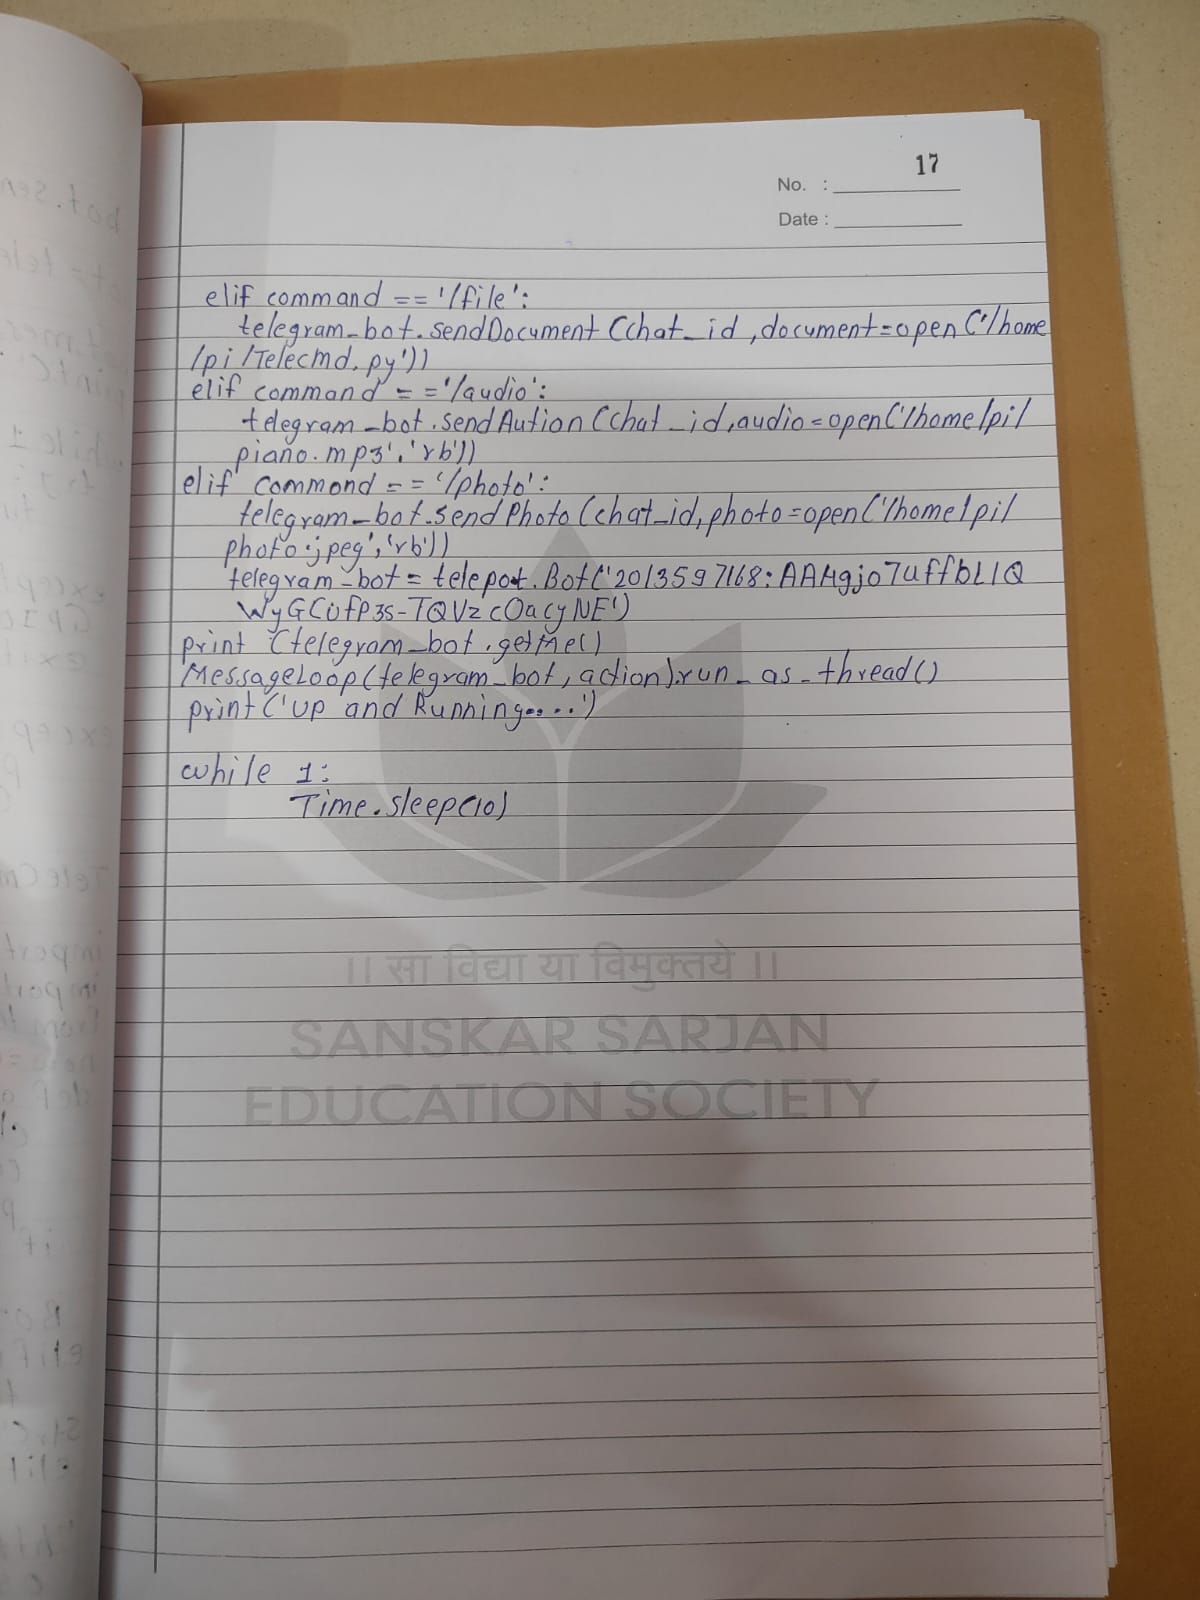 17
No. :
Date :
elif command == '/file':
telegram_bot.sendDocument (chat_id, document=open('/home
/pi/Telecmd.py'))
elif command == '/audio':
telegram_bot.sendAution (chat_id, audio=open('/home/pi/
piano.mp3','rb'))
elif commond == '/photo':
telegram_bot.sendPhoto (chat_id, photo=open('/home/pi/
photo.jpeg','rb'))
telegram_bot = telepot.Bot('2013597168:AAHgjo7uffbLIQ
WyGCUfP3s-TQVzcOacyNE')
print (telegram_bot.getMe()
MessageLoop(telegram_bot, action).run_as_thread()
print('Up and Running.....')
while 1:
Time.sleep(10)
।। सा विद्या या विमुक्तये ।।
SANSKAR SARJAN
EDUCATION SOCIETY